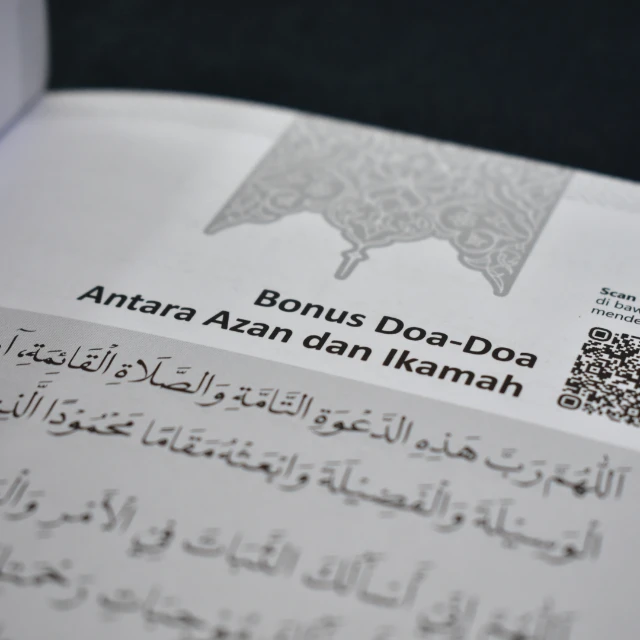 Bonus Doa-Doa
Antara Azan dan Ikamah
Scan
di baw
mende
اَللّٰهُمَّ رَبَّ هَذِهِ الدَّعْوَةِ التَّامَّةِ وَالصَّلَاةِ الْقَائِمَةِ، آ
الْوَسِيْلَةَ وَالْفَضِيْلَةَ وَابْعَثْهُ مَقَامًا مَحْمُوْدًا الَّذِ
اَللّٰهُمَّ اِنِّيْ أَسْأَلُكَ الثَّبَاتَ فِي الْأَمْرِ وَالْ